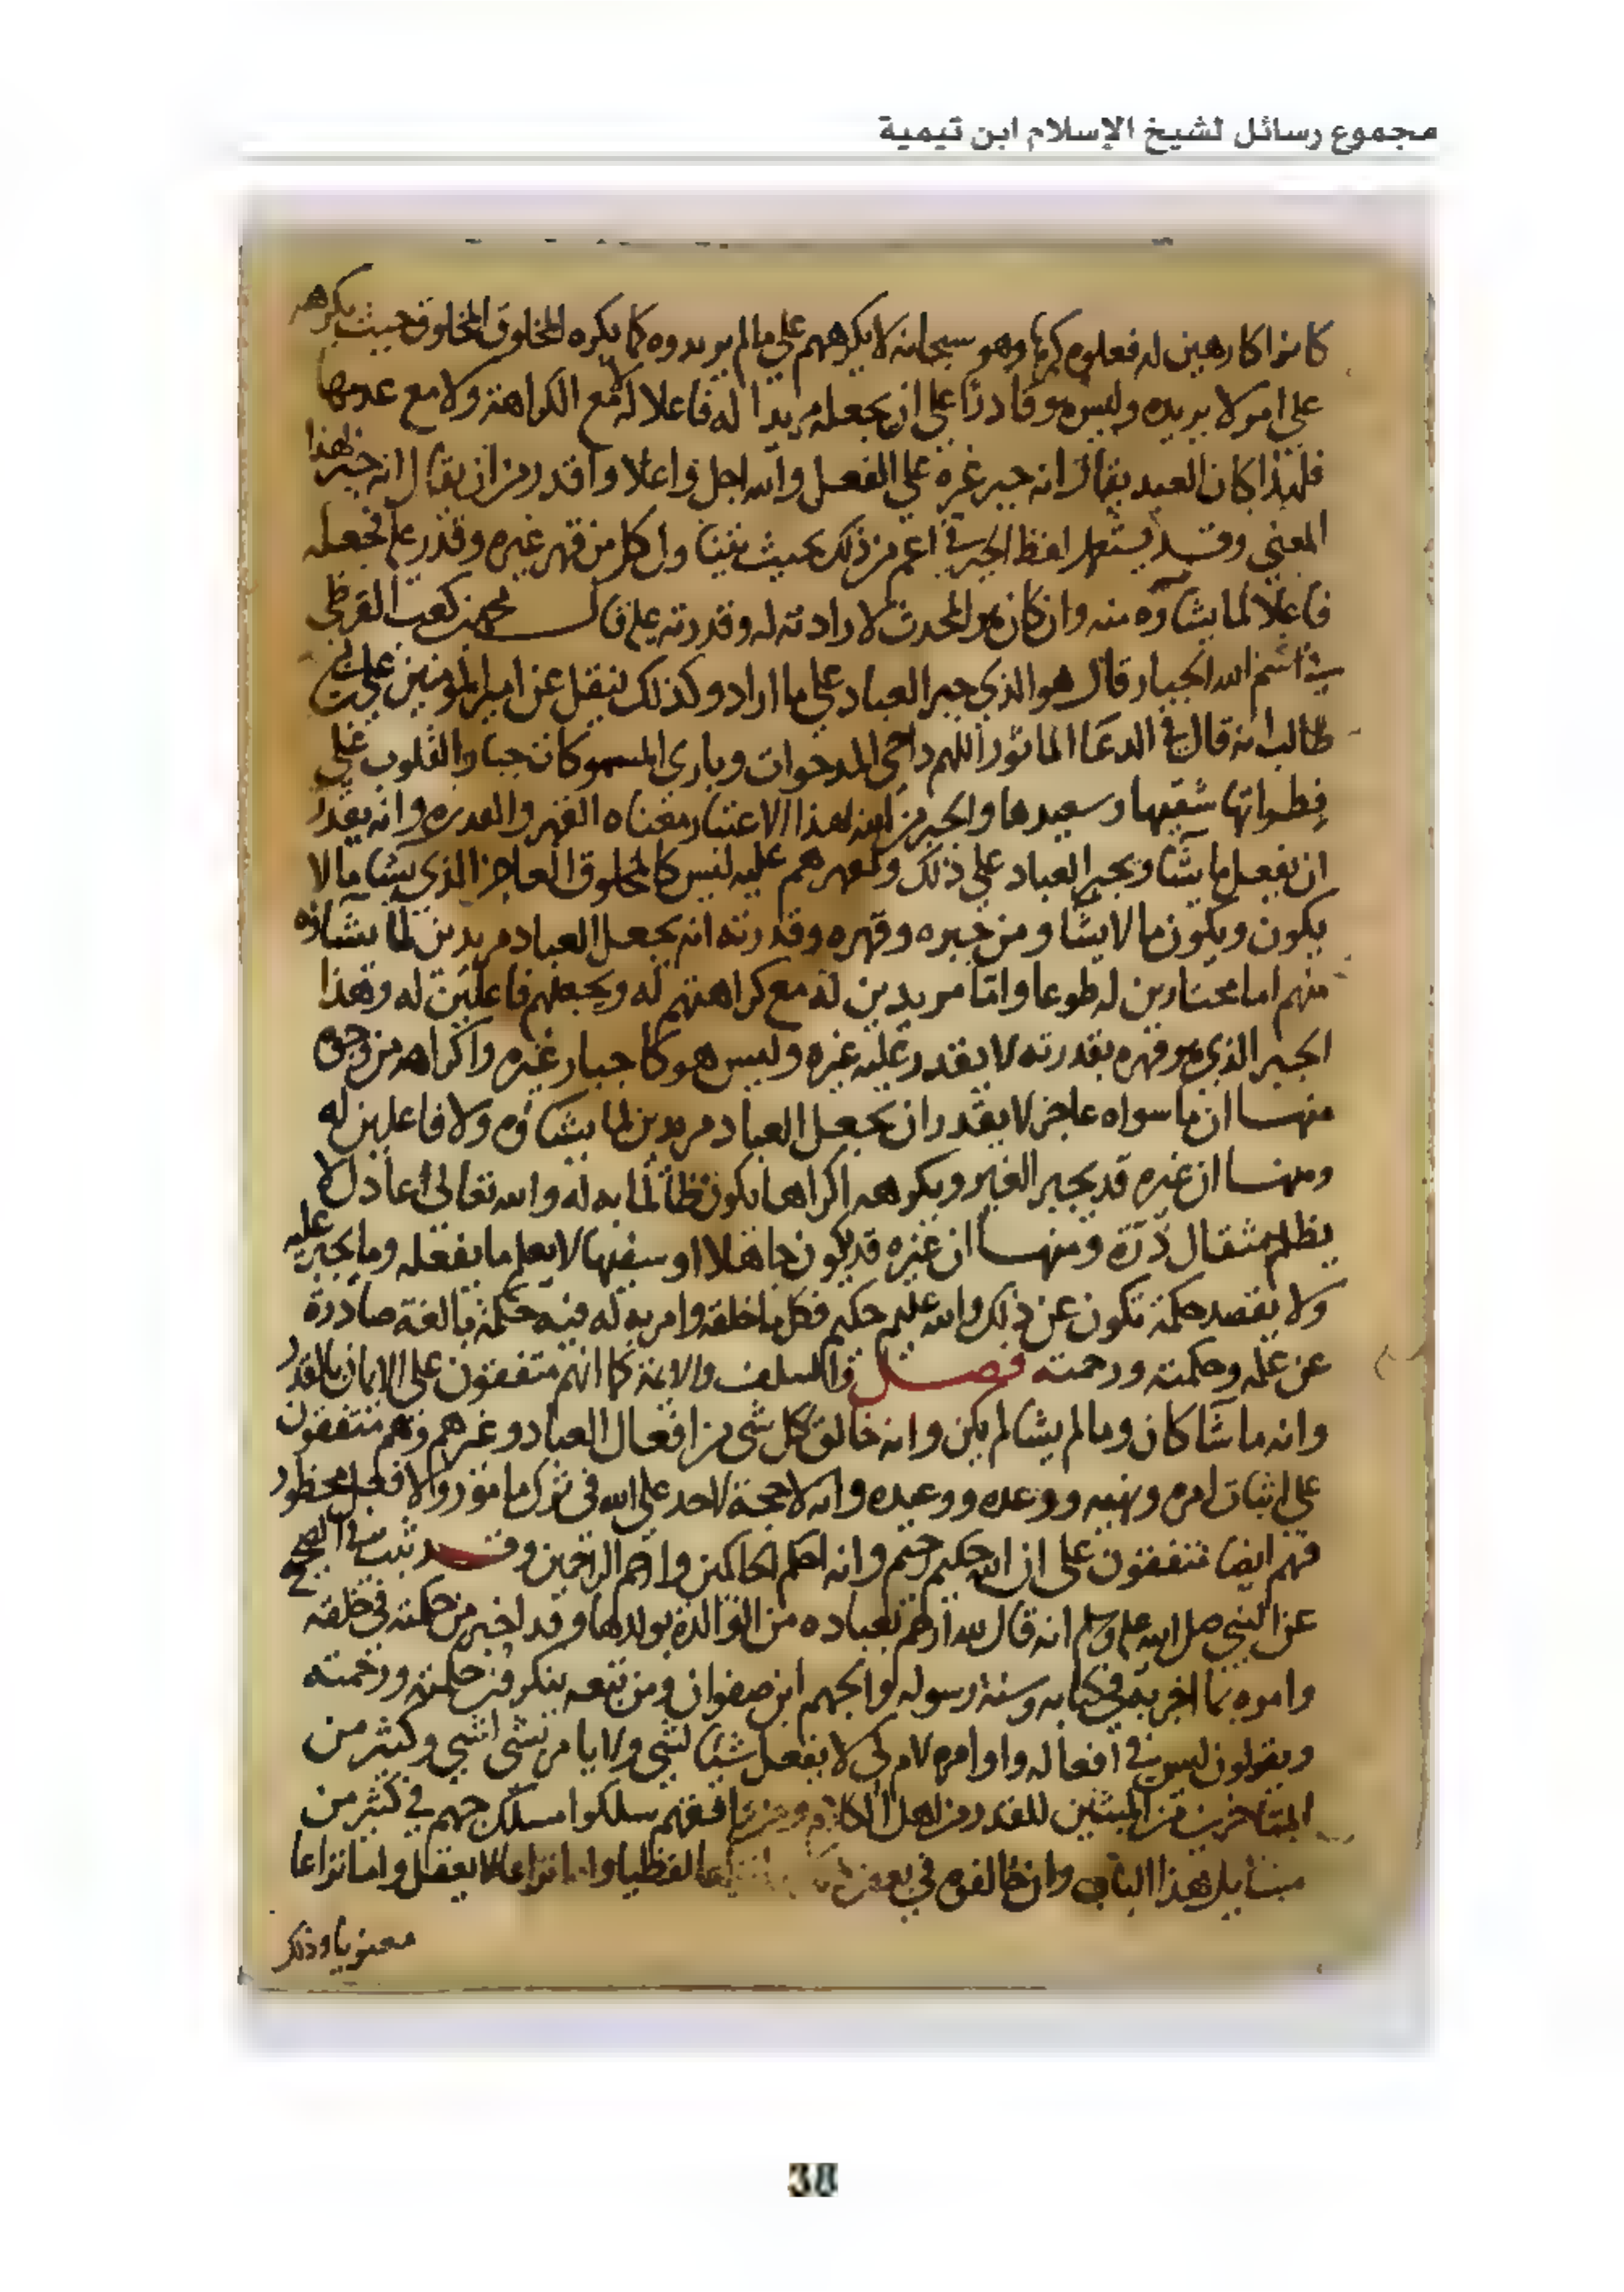 مجموع رسائل لشيخ الإسلام ابن تيمية
كانوا كارهين له فعلوه كرها وهو سبحانه لا يكرههم على ما لم يريدوه كما يكره المخلوق المخلوق حيث يكرهه
على امر لا يريده وليس هو قادرا على ان يجعله مريدا له فاعلا له لا مع الكراهة ولا مع عدمها
فلهذا كان العبد يقال انه جبر غيره على الفعل والله اجل واعلا واقدر من ان يقال انه جبر بهذا
المعنى وقد يستعمل لفظ الجبر في اعم من ذلك بحيث يتناول كل من قهر غيره وقدر على جعله
فاعلا لما يشاؤه منه وان كان هو المحدث لارادته له وقدرته عليه قال محمد بن كعب القرظي
في اسم الله الجبار قال هو الذي جبر العباد على ما اراد وكذلك ينقل عن امير المؤمنين علي بن ابي
طالب انه قال في الدعا الماثور اللهم داحي المدحوات وباري المسموكات جبار القلوب على
فطراتها شقيها وسعيدها والجبر من الله بهذا الاعتبار معناه القهر والقدرة وانه يقدر
ان يفعل ما يشا ويجبر العباد على ذلك ويقهرهم عليه ليس كالمخلوق العاجز الذي يشا ما لا
يكون ويكون ما لا يشا ومن جبره وقهره وقدرته انه يجعل العباد مريدين لما يشاؤه
منهم اما مختارين له طوعا واما مريدين له مع كراهتهم له ويجعلهم فاعلين له وهذا
الجبر الذي هو قهره بقدرته لا يقدر عليه غيره وليس هو كاجبار غيره واكراهه من وجوه
منها ان ما سواه عاجز لا يقدر ان يجعل العباد مريدين لما يشاؤه ولا فاعلين له
ومنها ان غيره قد يجبر الغير ويكرهه اكراها يكون ظالما به له والله تعالى عادل لا
يظلم مثقال ذرة ومنها ان غيره قد يكون جاهلا او سفيها لا يعلم ما يفعله وما يجبر عليه
ولا يقصد حكمة تكون عن ذلك والله عليم حكيم فكل ما خلقه وامر به له فيه حكمة بالغة صادرة
عن علمه وحكمته ورحمته فصل والسلف والائمة كما انهم متفقون على الايمان بالقدر
وانه ما شا كان وما لم يشا لم يكن وانه خالق كل شي من افعال العباد وغيرهم وهم متفقون
على اثبات امره ونهيه ووعده ووعيده وانه لا حجة لاحد على الله في ترك مامور ولا فعل محظور
فهم ايضا متفقون على ان الله حكيم رحيم وانه احكم الحاكمين وارحم الراحمين وقد ثبت في الصحيح
عن النبي صلى الله عليه وسلم انه قال لله ارحم بعباده من الوالدة بولدها وقد اخبر من حكمته في خلقه
وامره بما اخبر به في كتابه وسنة رسوله والجهم ابن صفوان ومن تبعه ينكرون حكمته ورحمته
ويقولون ليس في افعاله واوامره لام كي لا يفعل شيئا لشي ولا يامر بشي لشي وكثير من
المتاخرين من المثبتين للقدر من اهل الكلام ومن وافقهم سلكوا مسلك جهم في كثير من
مسايل هذا الباب وان خالفوه في بعض ذلك اما نزاعا لفظيا واما نزاعا لا يعقل واما نزاعا
معنويا وذلك
38